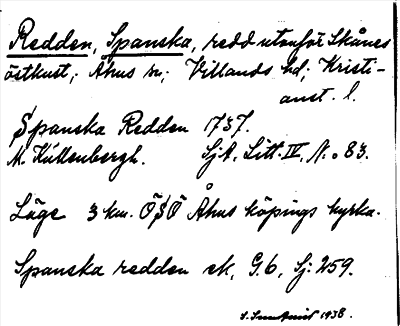 Redden, Spanska, redd utanför Skånes
östkust; Åhus sn; Villands hd; Kristi-
anst. l.
Spanska Redden 1737.
N. Kullenbergh. SjA, Litt. IV, N. o 83.
Läge 3 km. ÖSÖ Åhus köpings kyrka.
Spanska redden ek, G.6, Sj: 259.
1938.